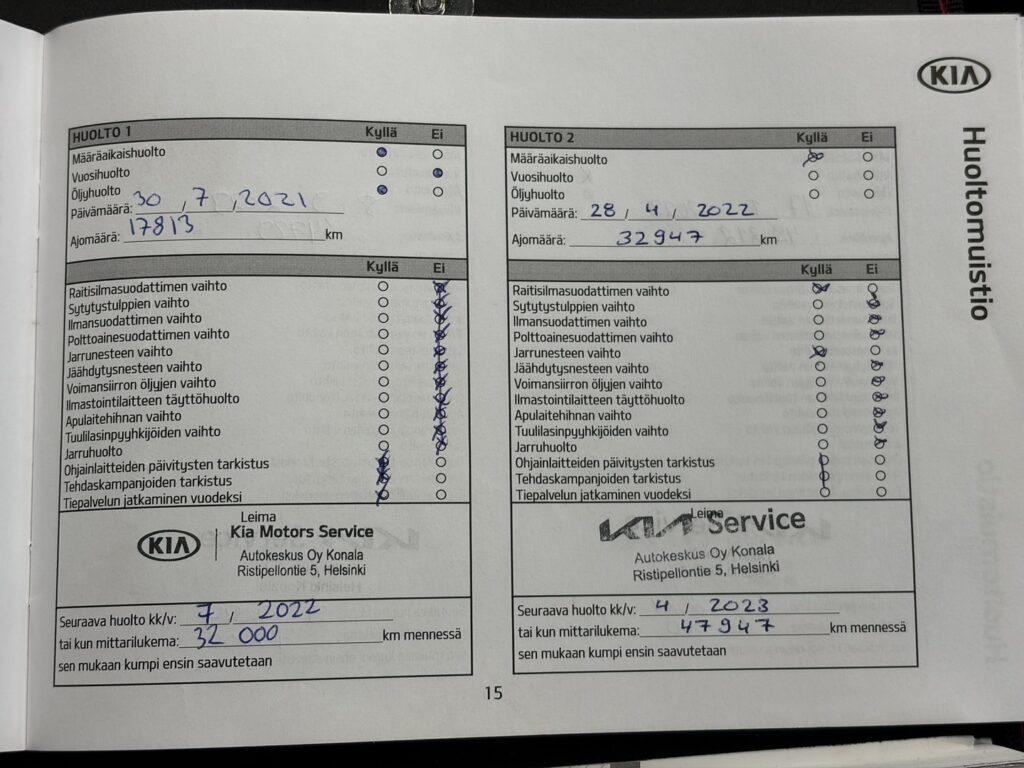 KIA
Huoltomuistio
HUOLTO 1 Kyllä Ei
Määräaikaishuolto
Vuosihuolto
Öljyhuolto
Päivämäärä: 30 , 7 , 2021
Ajomäärä: 17813 km
Kyllä Ei
Raitisilmasuodattimen vaihto
Sytytystulppien vaihto
Ilmansuodattimen vaihto
Polttoainesuodattimen vaihto
Jarrunesteen vaihto
Jäähdytysnesteen vaihto
Voimansiirron öljyjen vaihto
Ilmastointilaitteen täyttöhuolto
Apulaitehihnan vaihto
Tuulilasinpyyhkijöiden vaihto
Jarruhuolto
Ohjainlaitteiden päivitysten tarkistus
Tehdaskampanjoiden tarkistus
Tiepalvelun jatkaminen vuodeksi
Leima
KIA Kia Motors Service
Autokeskus Oy Konala
Ristipellontie 5, Helsinki
Seuraava huolto kk/v: 7 / 2022
tai kun mittarilukema: 32 000 km mennessä
sen mukaan kumpi ensin saavutetaan
HUOLTO 2 Kyllä Ei
Määräaikaishuolto
Vuosihuolto
Öljyhuolto
Päivämäärä: 28 / 4 / 2022
Ajomäärä: 32947 km
Kyllä Ei
Raitisilmasuodattimen vaihto
Sytytystulppien vaihto
Ilmansuodattimen vaihto
Polttoainesuodattimen vaihto
Jarrunesteen vaihto
Jäähdytysnesteen vaihto
Voimansiirron öljyjen vaihto
Ilmastointilaitteen täyttöhuolto
Apulaitehihnan vaihto
Tuulilasinpyyhkijöiden vaihto
Jarruhuolto
Ohjainlaitteiden päivitysten tarkistus
Tehdaskampanjoiden tarkistus
Tiepalvelun jatkaminen vuodeksi
Leima
KIA Service
Autokeskus Oy Konala
Ristipellontie 5, Helsinki
Seuraava huolto kk/v: 4 / 2023
tai kun mittarilukema: 47947 km mennessä
sen mukaan kumpi ensin saavutetaan
15